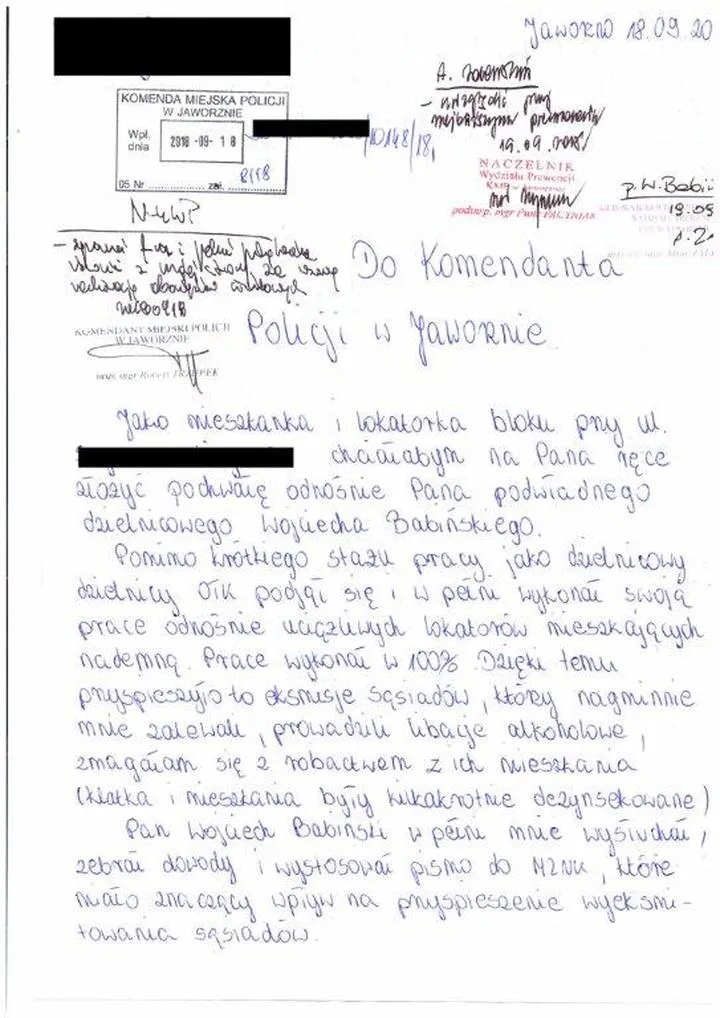 Jaworzno 18.09.20
KOMENDA MIEJSKA POLICJI
W JAWORZNIE
Wpł.
dnia
2018 -09- 18
05 Nr zał.
10148/18
19.09.2018
NACZELNIK
Wydziału Prewencji
p.W. Babiń
19.09
KOMENDANT MIEJSKI POLICJI
W JAWORZNIE
Do Komendanta
Policji w Jaworznie
Jako mieszkanka i lokatorka bloku przy ul.
chciałabym na Pana ręce
złożyć pochwałę odnośnie Pana podwładnego
dzielnicowego Wojciecha Babińskiego.
Pomimo krótkiego stażu pracy jako dzielnicowy
dzielnicy OTK podjął się i w pełni wykonał swoją
prace odnośnie uciążliwych lokatorów mieszkających
nademną. Prace wykonał w 100%. Dzięki temu
przyspieszyło to eksmisje sąsiadów, którzy nagminnie
mnie zalewali, prowadzili libacje alkoholowe,
zmagałam się z robactwem z ich mieszkania
(klatka i mieszkania były kilkakrotnie dezynsekowane)
Pan Wojciech Babiński w pełni mnie wysłuchał,
zebrał dowody i wystosował pismo do MZNK, które
miało znaczący wpływ na przyspieszenie wyeksmi-
towania sąsiadów.